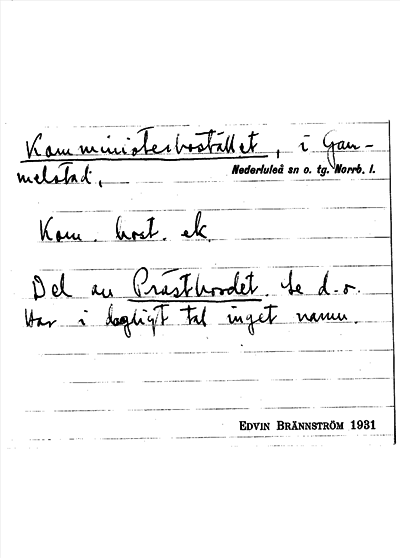 Komministerbostället, i Gam-
melstad,
Nederluleå sn o. tg. Norrb. l.
Kom. bost. ek.
Del av Prästbordet. Se d. o.
Har i dagligt tal inget namn.
EDVIN BRÄNNSTRÖM 1931